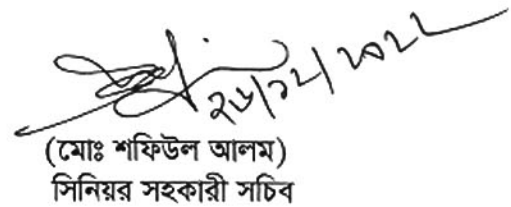 ২৬/১২/২০২২
(মোঃ শফিউল আলম)
সিনিয়র সহকারী সচিব